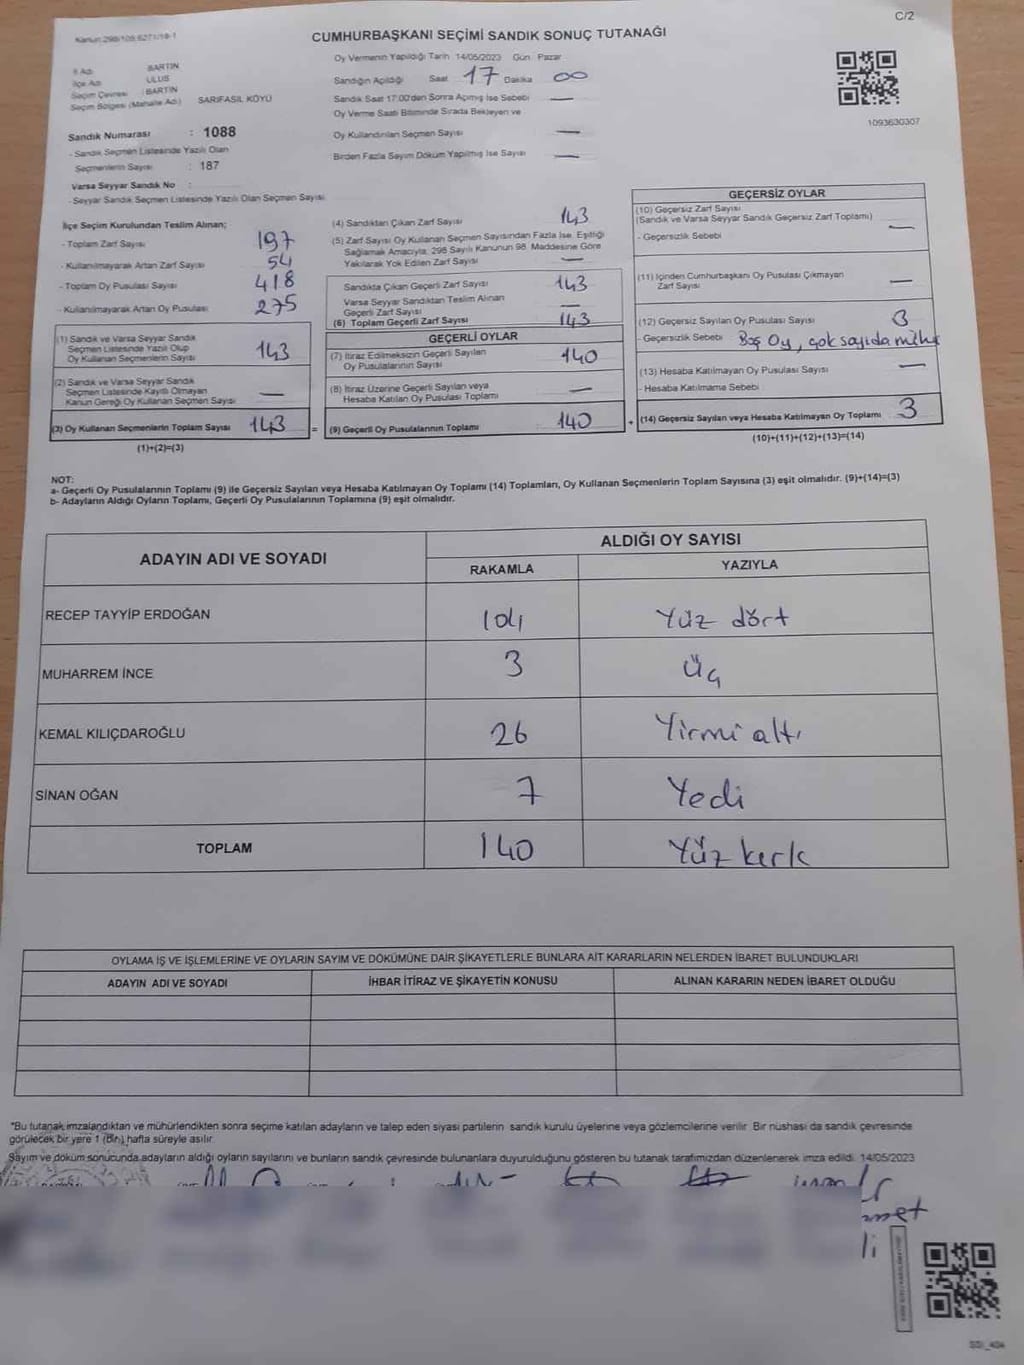 C/2
Kanun:298/109,6271/19-1
CUMHURBAŞKANI SEÇİMİ SANDIK SONUÇ TUTANAĞI
Oy Vermenin Yapıldığı Tarih 14/05/2023 Gün Pazar
İl Adı BARTIN
İlçe Adı ULUS
Seçim Çevresi : BARTIN
Seçim Bölgesi (Mahalle Adı) SARIFASIL KÖYÜ
Sandık Numarası : 1088
- Sandık Seçmen Listesinde Yazılı Olan
Seçmenlerin Sayısı : 187
Varsa Seyyar Sandık No :
- Seyyar Sandık Seçmen Listesinde Yazılı Olan Seçmen Sayısı
Sandığın Açıldığı Saat 17 Dakika 00
Sandık Saat 17:00'den Sonra Açımış İse Sebebi —
Oy Verme Saati Bitiminde Sırada Bekleyen ve
Oy Kullandırılan Seçmen Sayısı —
Birden Fazla Sayım Döküm Yapılmış İse Sayısı —
1093630307
İlçe Seçim Kurulundan Teslim Alınan;
- Toplam Zarf Sayısı 197
- Kullanılmayarak Artan Zarf Sayısı 54
- Toplam Oy Pusulası Sayısı 418
- Kullanılmayarak Artan Oy Pusulası 275
(1) Sandık ve Varsa Seyyar Sandık
Seçmen Listesinde Yazılı Olup
Oy Kullanan Seçmenlerin Sayısı 143
(2) Sandık ve Varsa Seyyar Sandık
Seçmen Listesinde Kayıtlı Olmayan
Kanun Gereği Oy Kullanan Seçmen Sayısı —
(3) Oy Kullanan Seçmenlerin Toplam Sayısı 143 =
(1)+(2)=(3)
(4) Sandıktan Çıkan Zarf Sayısı 143
(5) Zarf Sayısı Oy Kullanan Seçmen Sayısından Fazla İse, Eşitliği
Sağlamak Amacıyla, 298 Sayılı Kanunun 98. Maddesine Göre
Yakılarak Yok Edilen Zarf Sayısı —
Sandıkta Çıkan Geçerli Zarf Sayısı 143
Varsa Seyyar Sandıktan Teslim Alınan
Geçerli Zarf Sayısı —
(6) Toplam Geçerli Zarf Sayısı 143
GEÇERLİ OYLAR
(7) İtiraz Edilmeksizin Geçerli Sayılan
Oy Pusulalarının Sayısı 140
(8) İtiraz Üzerine Geçerli Sayılan veya
Hesaba Katılan Oy Pusulası Toplamı —
(9) Geçerli Oy Pusulalarının Toplamı 140 +
GEÇERSİZ OYLAR
(10) Geçersiz Zarf Sayısı
(Sandık ve Varsa Seyyar Sandık Geçersiz Zarf Toplamı) —
- Geçersizlik Sebebi
(11) İçinden Cumhurbaşkanı Oy Pusulası Çıkmayan
Zarf Sayısı —
(12) Geçersiz Sayılan Oy Pusulası Sayısı 3
- Geçersizlik Sebebi Boş Oy, çok sayıda mühr
(13) Hesaba Katılmayan Oy Pusulası Sayısı —
- Hesaba Katılmama Sebebi
(14) Geçersiz Sayılan veya Hesaba Katılmayan Oy Toplamı 3
(10)+(11)+(12)+(13)=(14)
NOT:
a- Geçerli Oy Pusulalarının Toplamı (9) ile Geçersiz Sayılan veya Hesaba Katılmayan Oy Toplamı (14) Toplamları, Oy Kullanan Seçmenlerin Toplam Sayısına (3) eşit olmalıdır. (9)+(14)=(3)
b- Adayların Aldığı Oyların Toplamı, Geçerli Oy Pusulalarının Toplamına (9) eşit olmalıdır.
ADAYIN ADI VE SOYADI ALDIĞI OY SAYISI
RAKAMLA YAZIYLA
RECEP TAYYİP ERDOĞAN 104 Yüz dört
MUHARREM İNCE 3 Üç
KEMAL KILIÇDAROĞLU 26 Yirmi altı
SİNAN OĞAN 7 Yedi
TOPLAM 140 Yüz kırk
OYLAMA İŞ VE İŞLEMLERİNE VE OYLARIN SAYIM VE DÖKÜMÜNE DAİR ŞİKAYETLERLE BUNLARA AİT KARARLARIN NELERDEN İBARET BULUNDUKLARI
ADAYIN ADI VE SOYADI İHBAR İTİRAZ VE ŞİKAYETİN KONUSU ALINAN KARARIN NEDEN İBARET OLDUĞU
*Bu tutanak imzalandıktan ve mühürlendikten sonra seçime katılan adayların ve talep eden siyasi partilerin sandık kurulu üyelerine veya gözlemcilerine verilir. Bir nüshası da sandık çevresinde
görülecek bir yere 1 (Bir) hafta süreyle asılır.
Sayım ve döküm sonucunda adayların aldığı oyların sayılarını ve bunların sandık çevresinde bulunanlara duyurulduğunu gösteren bu tutanak tarafımızdan düzenlenerek imza edildi. 14/05/2023